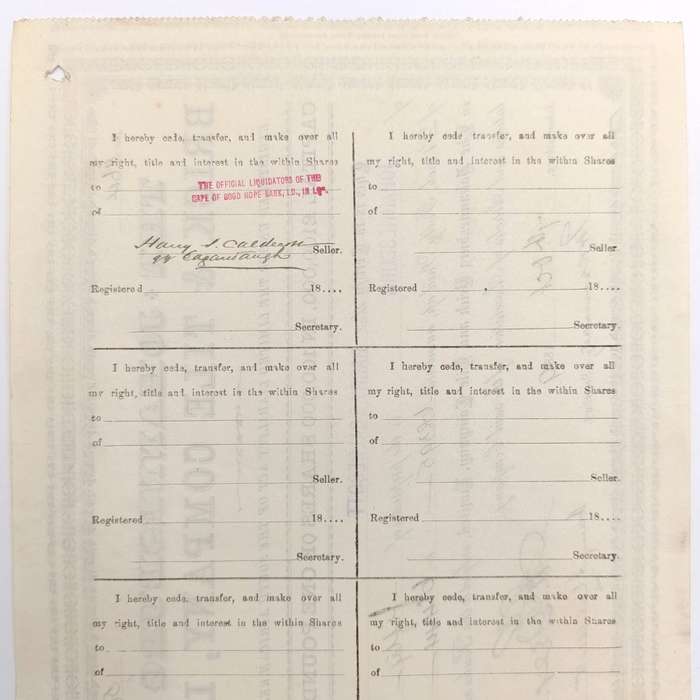 I hereby cede, transfer, and make over all
my right, title and interest in the within Shares
to THE OFFICIAL LIQUIDATORS OF THE
CAPE OF GOOD HOPE BANK, LD., IN LIQN.
of
Harry S. Caldecott Seller.
Registered 18....
Secretary.
I hereby cede transfer, and make over all
my right, title and interest in the within Shares
to
of
Seller.
Registered 18....
Secretary.
I hereby cede, transfer, and make over all
my right, title and interest in the within Shares
to
of
Seller.
Registered 18....
Secretary.
I hereby cede, transfer, and make over all
my right, title and interest in the within Shares
to
of
Seller.
Registered 18....
Secretary.
I hereby cede, transfer, and make over all
my right, title and interest in the within Shares
to
of
I hereby cede, transfer, and make over all
my right, title and interest in the within Shares
to
of